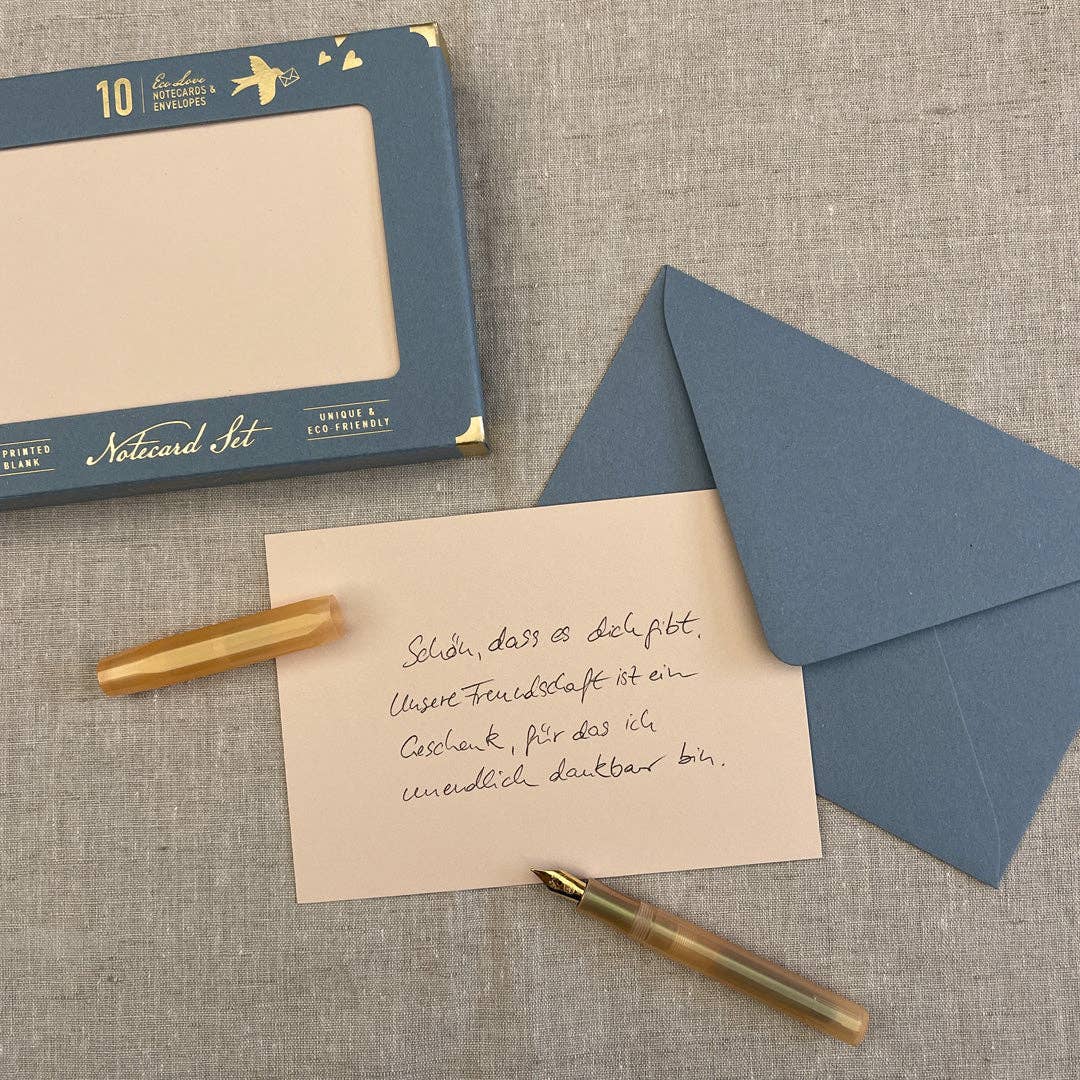 10
Eco Love
NOTECARDS &
ENVELOPES
PRINTED
BLANK
Notecard Set
UNIQUE &
ECO-FRIENDLY
Schön, dass es dich gibt.
Unsere Freundschaft ist ein
Geschenk, für das ich
unendlich dankbar bin.